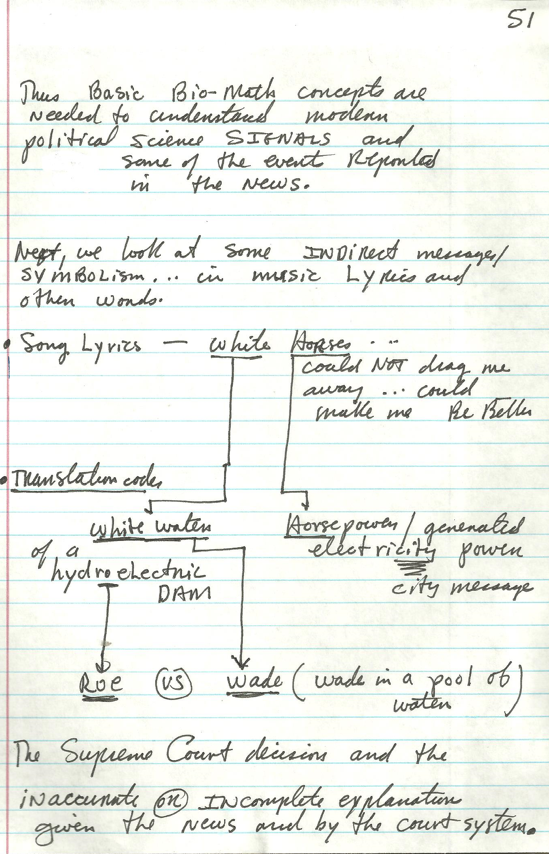 51
Thus Basic Bio-Math concepts are
needed to understand modern
political science SIGNALS and
some of the event Reported
in the News.
Next, we look at some INDirect messages/
SYMBOLISM... in music Lyrics and
other words.
• Song Lyrics — White Horses ...
could NOT drag me
away ... could
make me Be Better
• Translation codes
White water Horsepower / generated
of a electricity power
hydroelectric city message
DAM
Roe VS Wade (wade in a pool of
water)
The Supreme Court decision and the
inaccurate OR INcomplete explanation
given the News and by the court system.